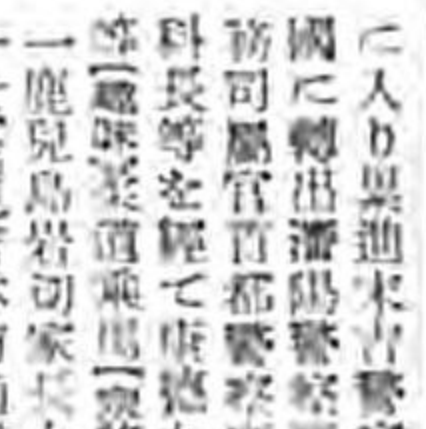 に入り末吉警
國に轉出瀋陽警察
務司屬官首都警察
科長等を經て康德
等【趣味】柔道乘馬【家
一鹿兒島岩切家長